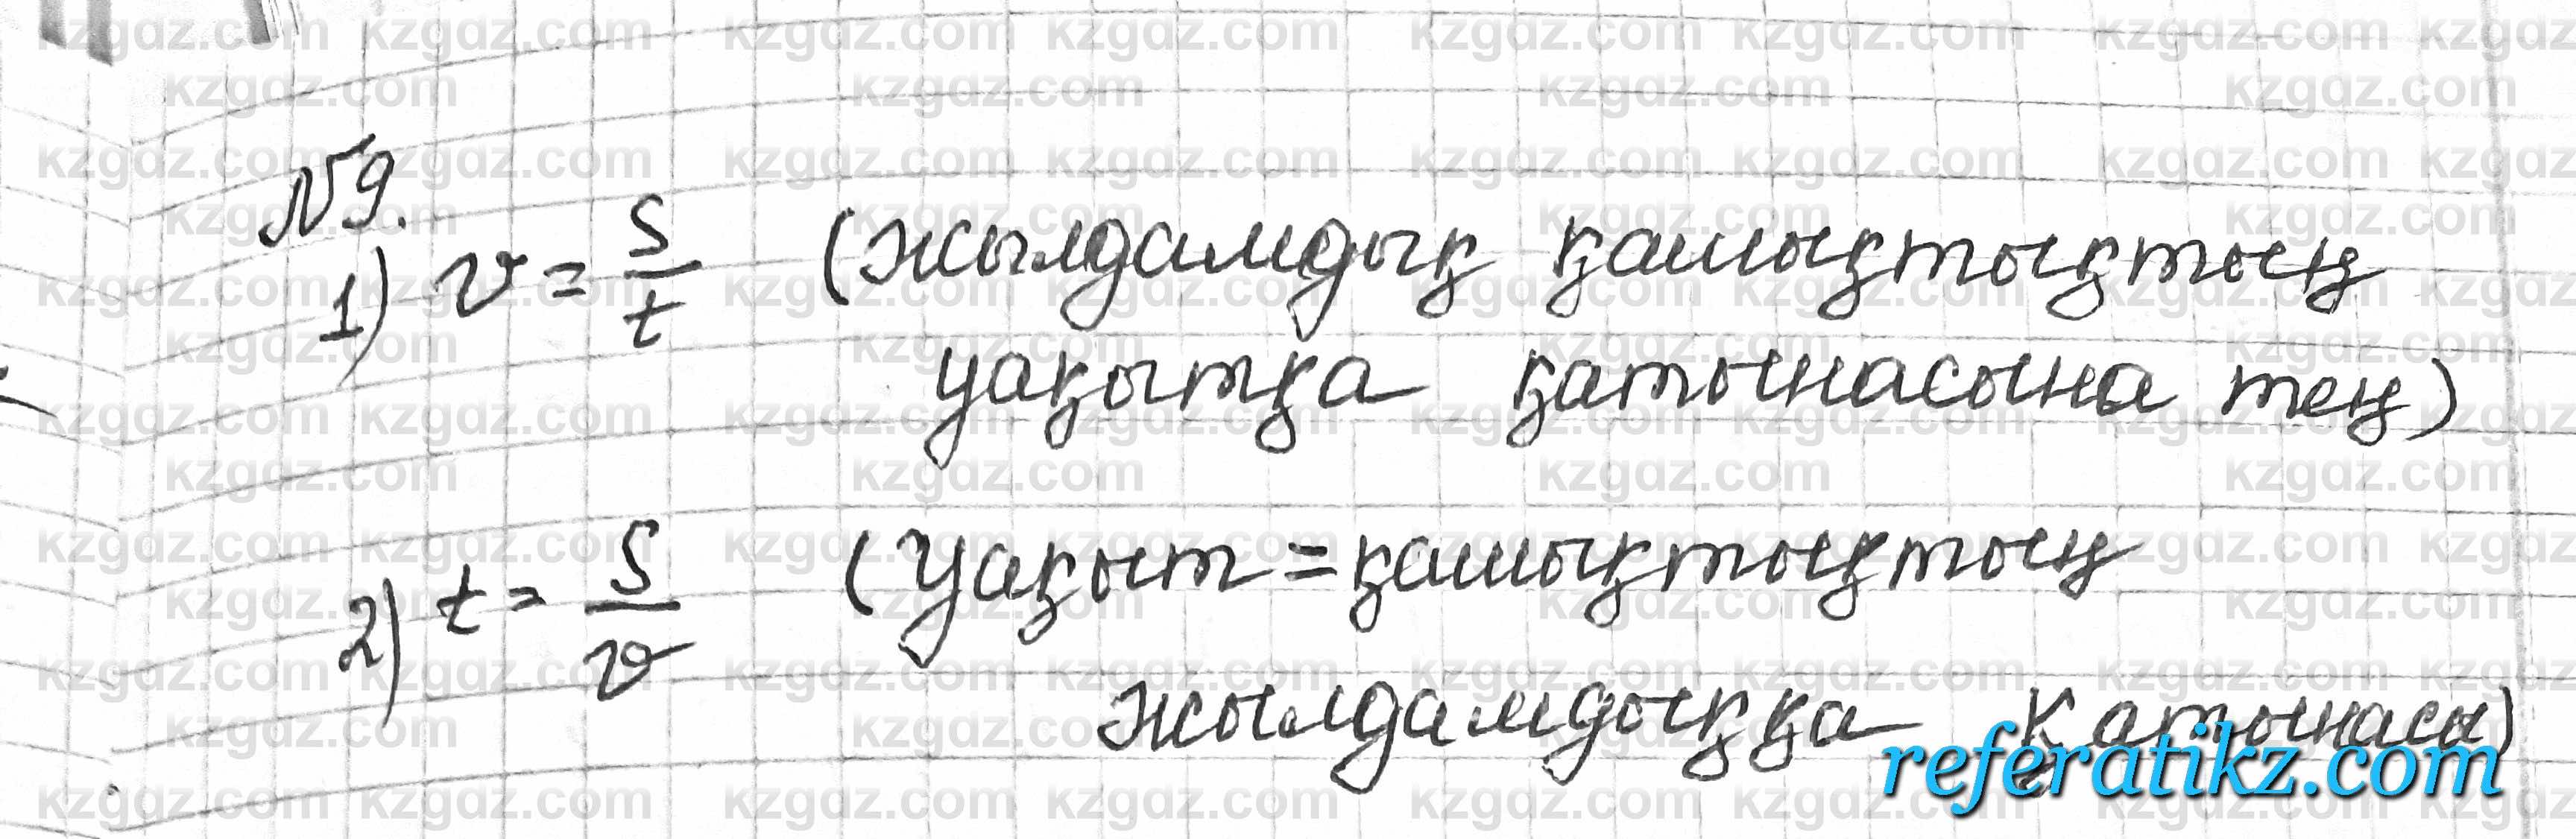 №9.
1) v = s/t (жылдамдық қашықтықтың
уақытқа қатынасына тең)
2) t = s/v (Уақыт = қашықтықтың
жылдамдыққа қатынасы)
referatikz.com
kzgdz.com